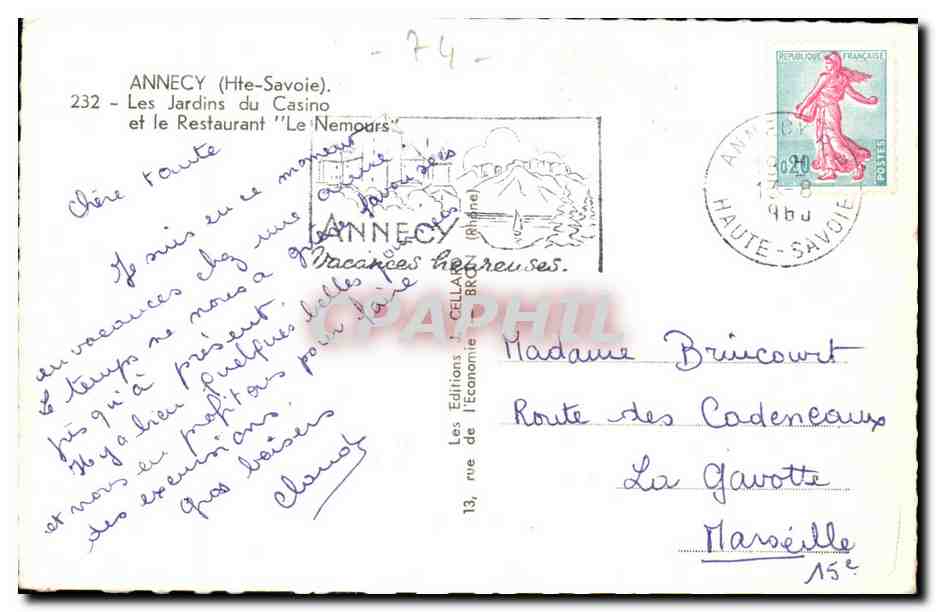 - 74 -
ANNECY (Hte-Savoie).
232 - Les Jardins du Casino
et le Restaurant "Le Nemours"
Chère tante
Je suis en ce moment
en vacances chez une amie.
Le temps ne nous a guère favorisées
jusqu'à présent.
Il y a bien quelques belles journées
et nous en profitons pour faire
des excursions.
gros baisers
Claude
ANNECY
Vacances heureuses.
Les Editions J. CELLARD
13, rue de l'Economie - BRON (Rhône)
CPAPHIL
REPUBLIQUE FRANÇAISE
0,20
POSTES
ANNECY
HAUTE-SAVOIE
Madame Brincourt
Route des Cadeneaux
La Gavotte
Marseille
15e